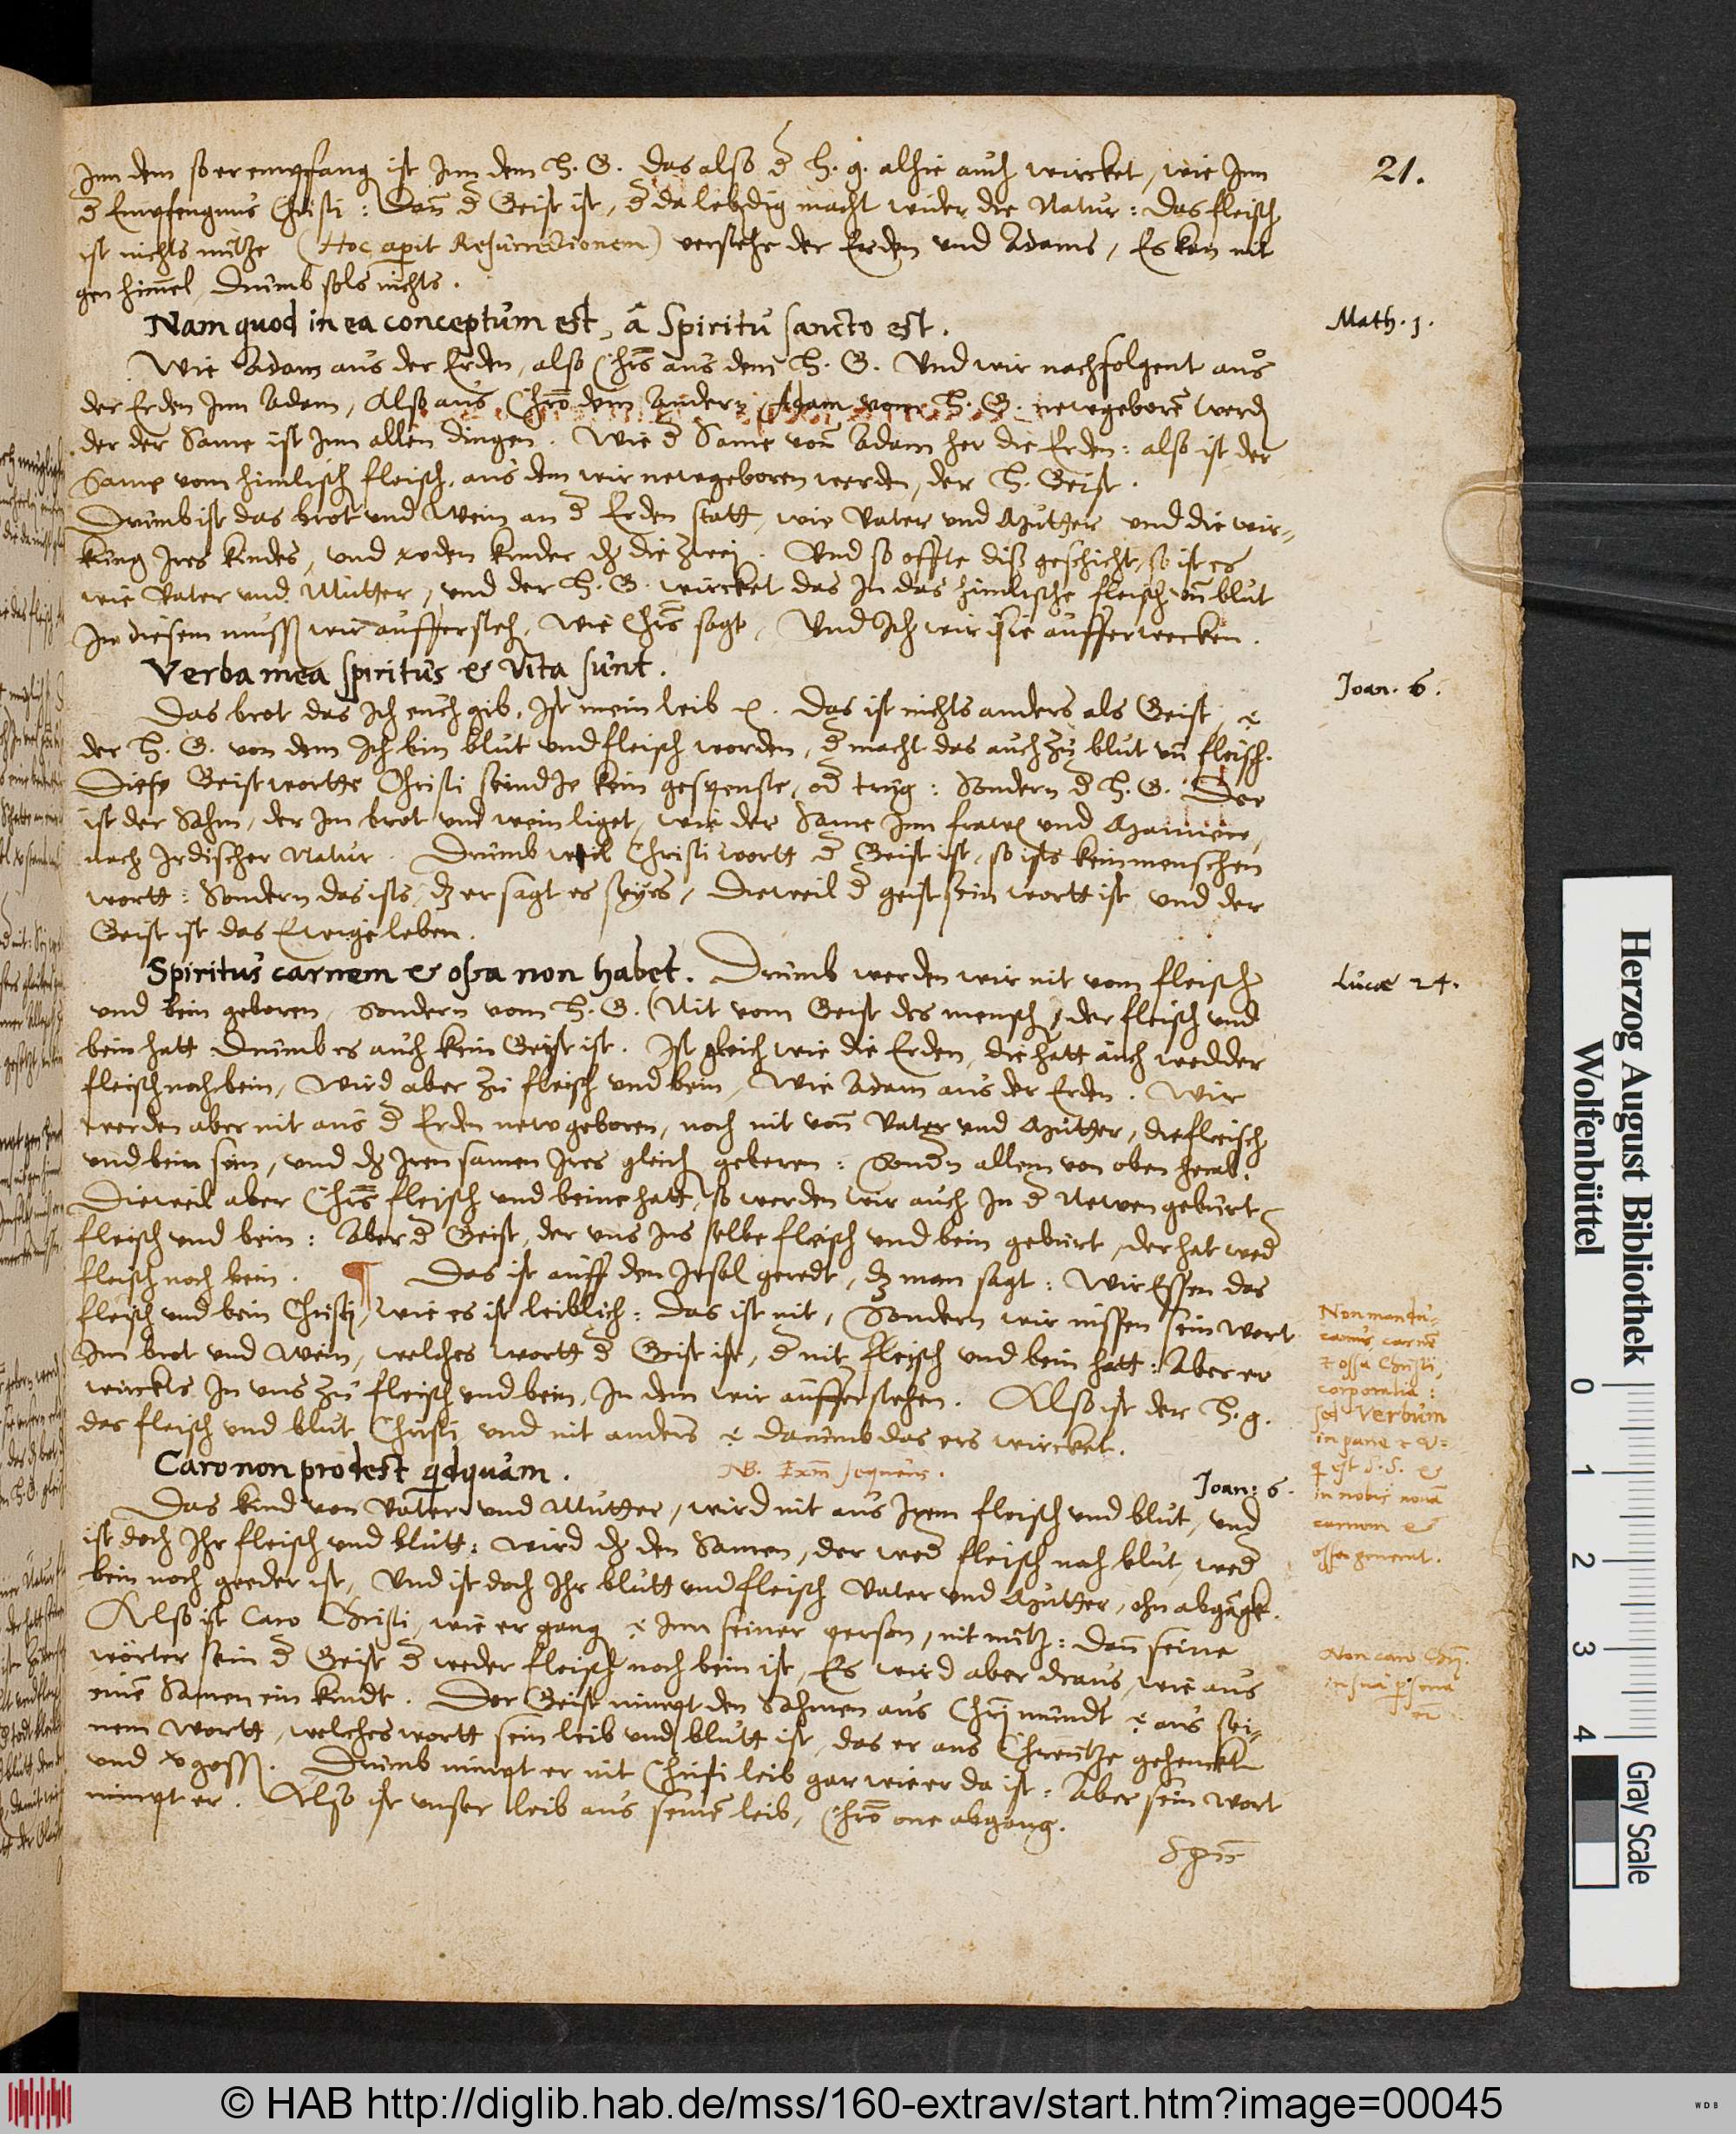 21.
Inn dem so er empfang ist Inn dem H. G. das also d̄ h. g. alhie auch wircket, wie Inn
d̄ Empfengnus Christi : Dan̄ d̄ Geist ist, d̄ da lebendig macht wider die Natur : Das fleisch
ist nichts nütze (Hoc aperit Resurrectionem) verstehe der Erden vnd Adams, Es kan nit
gen him̄el, Drumb sols nichts.
Nam quod in ea conceptum est, à Spiritu sancto est.
Math. 1.
Wie Adam aus der Erden, also Chrs̄ aus dem H. G. Vnd wir nachfolgent aus
der Erden Inn Adam, Also aus Chrō dem Andern Adam vom H. G. newgeborē werdē
der der Same ist Inn allen dingen. Wie d̄ Same von̄ Adam her die Erden : also ist der
Same vom himlisch fleisch, aus dem wir newgeboren werden, der H. Geist.
Drumb ist das brot vnd Wein an d̄ Erden statt, wie Vater vnd Mutter vnd die wir-
kung Ires kindes, vnd werden kinder dz die zwei. Vnd so offte diß geschicht, so ist es
wie Vater vnd Mutter, vnd der H. G. wircket das In das himlische fleisch vn̄ blut
In diesem muss wir aufferstehē, wie Chrs̄ sagt, Vnd Ich wir sie aufferwecken.
Verba mea spiritus & vita sunt.
Joan. 6.
Das brot das Ich euch gib, Ist mein leib &. Das ist nichts anders als Geist, &
der H. G. von dem Ich bin blut vnd fleisch worden, d̄ macht das auch zu blut vn̄ fleisch.
Diese Geistwortte Christi seind Je kein gespenste, od̄ trug : Sondern d̄ H. G. Der
ist der Sahm, der Im brot vnd wein liget, wie der Same Inn frawē vnd Mannen,
nach Irdischer Natur. Drumb weil Christi wortt d̄ Geist ist, so ists kein menschen
wortt : Sondern das ists, dz er sagt es seyes, Dieweil d̄ geist sein wortt ist vnd der
Geist ist das Ewige leben.
Spiritus carnem & ossa non habet. Drumb werden wir nit vom fleisch
Lucæ 24.
vnd bein geboren, Sondern vom H. G. (Nit vom Geist des mensch, der fleisch vnd
bein hatt Drumb es auch kein Geist ist. Ist gleich wie die Erden, die hatt auch wedder
fleisch noch bein, wird aber zu fleisch vnd bein, wie Adam aus der Erden. Wir
werden aber nit aus d̄ Erden new geboren, noch nit von̄ Vater vnd Mutter, die fleisch
vnd bein sein, vnd dz Iren samen Ires gleich geberen : Sondn̄ allein von oben herab.
Dieweil aber Chrs̄ fleisch vnd beine hatt, so werden wir auch In d̄ Newen geburt
fleisch vnd bein : Aber d̄ Geist, der vns Ins selbe fleisch vnd bein gebürt, der hat wed̄
fleisch noch bein. ¶ Das ist auff den Insel geredt, dz man sagt : Wir Essen das
fleisch vnd bein Christi, wie es ist leiblich : Das ist nit, Sondern wir nissen sein wort
Im brot vnd Wein, welches wortt d̄ Geist ist, d̄ nit fleisch vnd bein hatt : Aber er
wirckts In vns zu fleisch vnd bein, In dem wir aufferstehen. Also ist der H. g.
das fleisch vnd blut Christi vnd nit anders & darumb das ers wircket.
Non mandu-
camus carnē
& ossa Christi,
corporalia :
sed Verbum
in pane & v=
q̄ est S. S. &
in nobis nouā
carnem &
ossa generat.
Caro non prodest q̄dquam.
NB. Exm̄ sequens.
Joan: 6.
Das kind von Vater vnd Mutter, wird nit aus Irem fleisch vnd blut, vnd
ist doch Ihr fleisch vnd blutt : wird dz den Samen, der wed̄ fleisch noch blut, wed̄
bein noch geeder ist, Vnd ist doch Ihr blutt vnd fleisch Vater vnd Mutter, ohn abgāgk.
Also ist Caro Christi, wie er gang & Inn seiner person, nit nütz : Dan̄ seine
wörter sein d̄ Geist d̄ weder fleisch noch bein ist, Es wird aber draus, wie aus
einē Samen ein kindt. Der Geist nimpt den Sahmen aus Chrī mundt & aus sei-
nem wortt, welches wortt sein leib vnd blutt ist, das er ans Chreutze gehenckt
vnd vgoss. Drumb nimpt er nit Christi leib gar wie er da ist : Aber sein wort
nimpt er. Also ist vnser leib aus seinē leib, Chrō one abgang.
Non caro Chrī.
in sua p̄sona
Spūs
Herzog August Bibliothek
Wolfenbüttel
0 1 2 3 4
Gray Scale
© HAB http://diglib.hab.de/mss/160-extrav/start.htm?image=00045
WDB